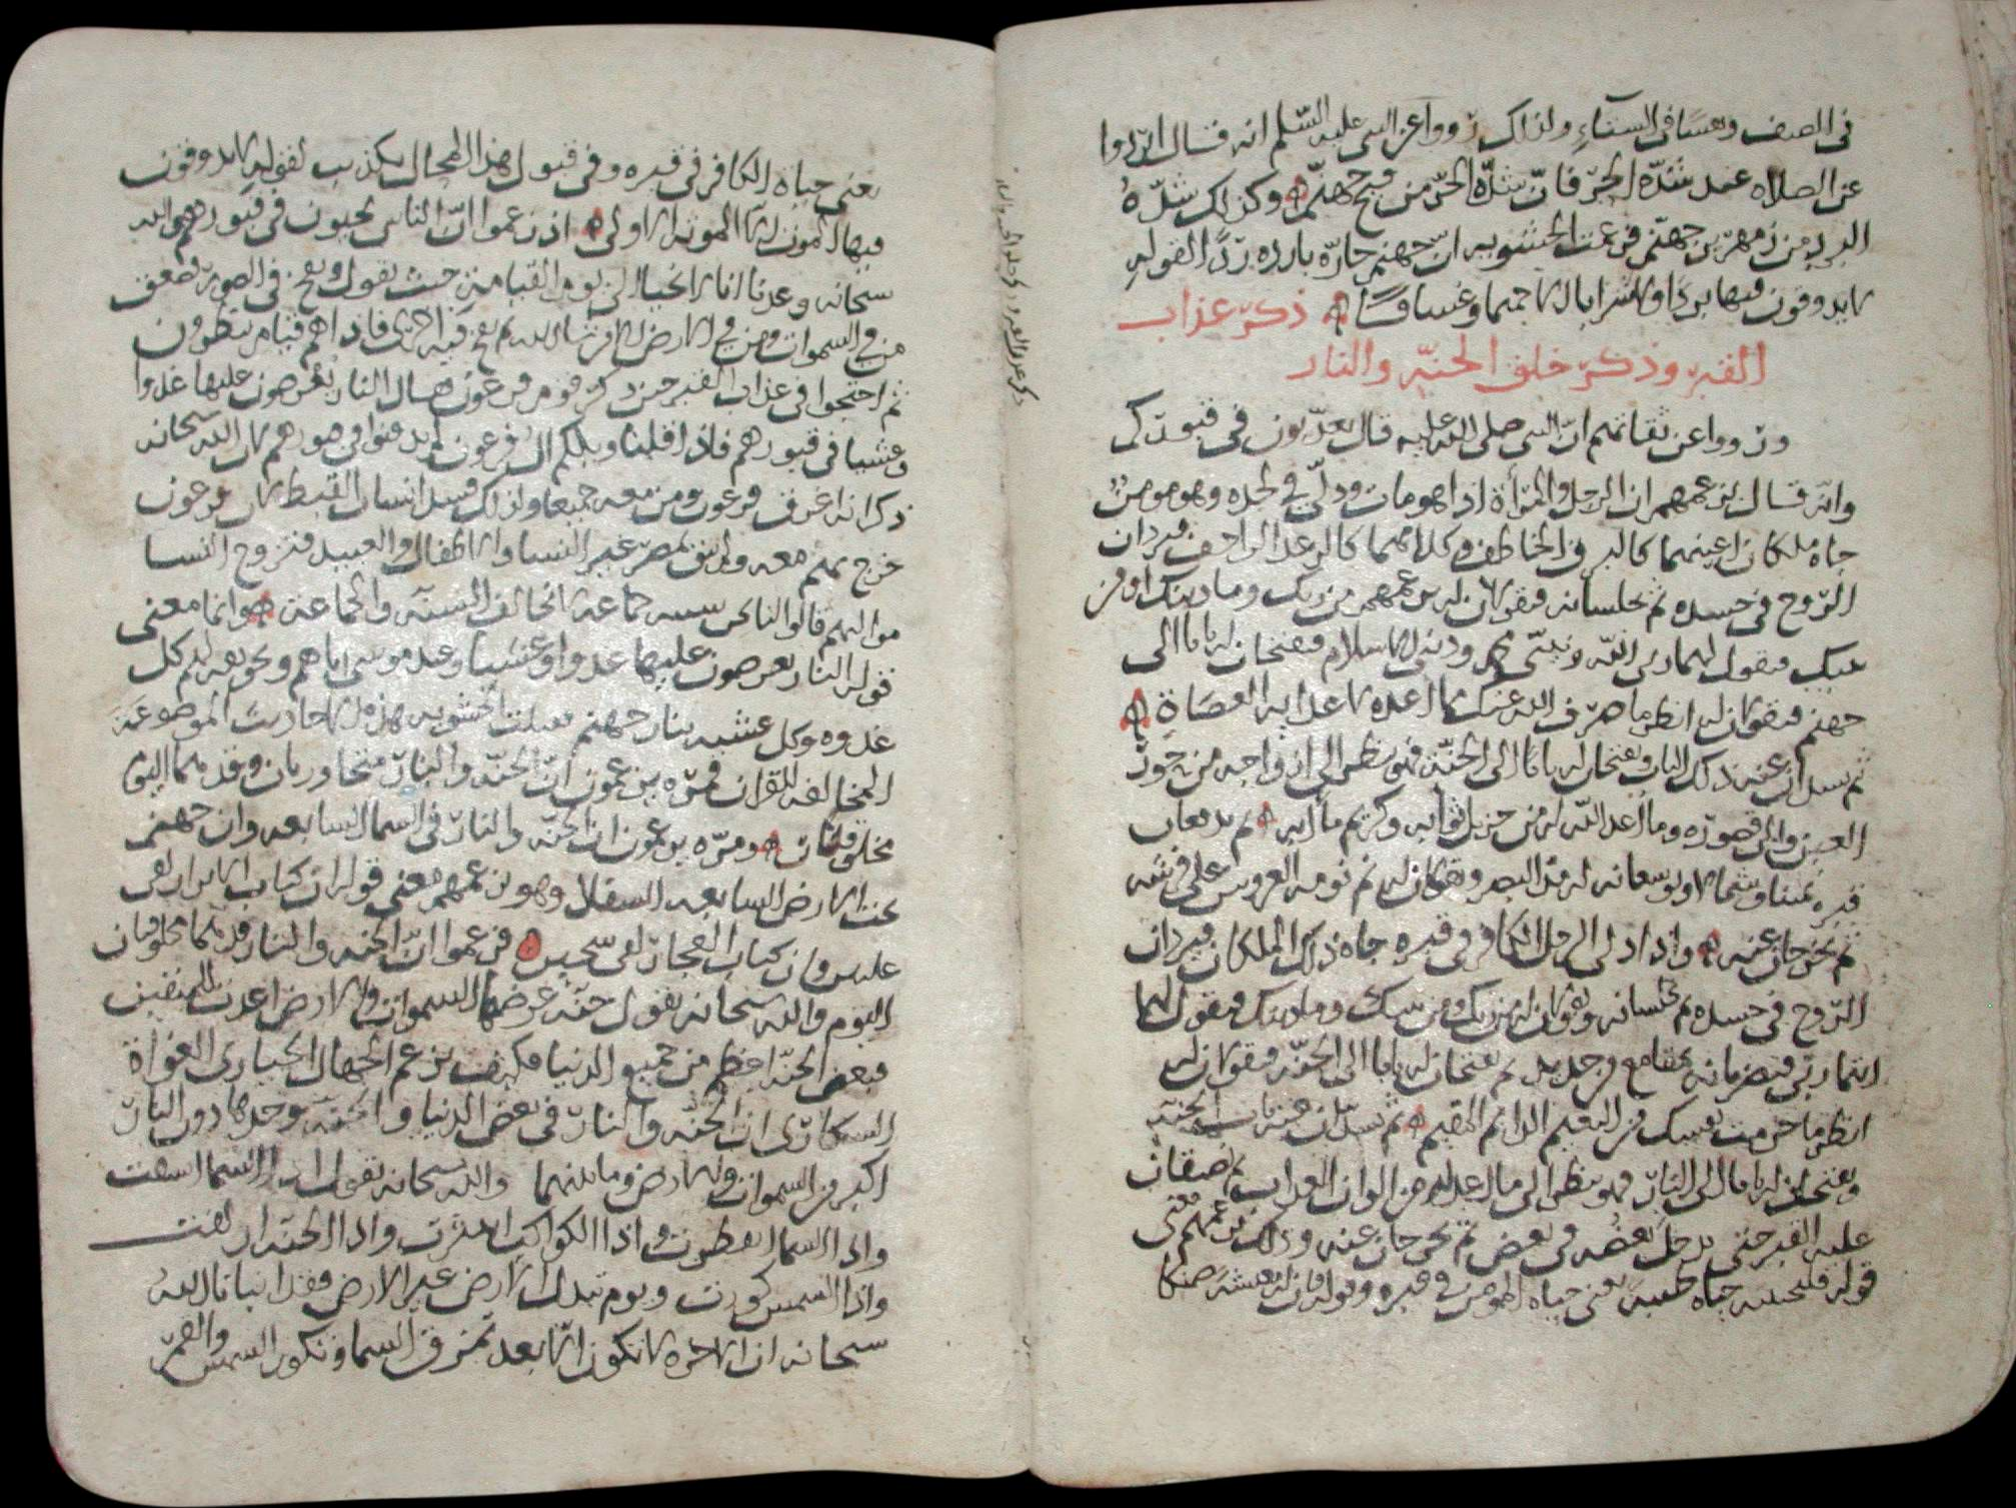 في الصيف ونفسا في الشتاء ولذلك رووا عن النبي عليه السلم انه قال ابردوا
عن الصلاه عند شدّه الحرّ فانّ شدّة الحرّ من فيح جهنّم وكذلك شدّةُ
البرد من زمهرير جهنّم فزعمت الحشويه ان جهنم حارّه بارده ردًّا لقوله
لا يذوقون فيها بردا ولا شرابا الا حميما وغساقًا ذكر عذاب
القبر وذكر خلق الجنّه والنار
ورووا عن ثقاتهم انّ النبي صلى الله عليه قال تعذّبون في قبوركم
وانّه قال بزعمهم ان الرجل والمرأة اذا هو مات ودلّي في لحده وهو مومن
جاه ملكان اعينهما كالبرق الخاطف وكلامهما كالرعد القاصف فيردان
الرّوح في جسده ثم يجلسانه فيقولان له بزعمهم من ربك وما دينك ومن
نبيك فيقول لهما ربي الله ونبيّي محمد وديني الاسلام فيفتحان له بابا الى
جهنم فيقولان له انظر ما صرف الله عنك مما اعده لاعدايه العصاة
ثم يسدان عنه ذلك الباب ويفتحان له بابا الى الجنّة فهو ينظر الى ازواجه من حور
العين والى قصوره وما اعد الله له من جزيل ثوابه وكريم مآبه ثم يدفعان
قبره يمينا وشمالا ويوسعانه له مدّ البصر ويقولان له نم نومه العروس على فرشه
ثم يخرجان عنه واذا دلي الرجل الكافر في قبره جاه ذلك الملكان فيردان
الرّوح في جسده ثم يجلسانه ويقولان له من ربك ومن نبيك وما دينك فيقول لهما
انتما ربّي فيضربانه بمقامع من حديد ثم يفتحان له بابا الى الجنّة فيقولان له
انظر ما حرمت نفسك من النعيم الدائم المقيم ثم يسدّان عنه باب الجنّه
ويفتحان له بابا الى النار فهو ينظر الى ما اعد له من الوان العذاب ثم يضيقان
عليه القبر حتى يدخل بعضه في بعض ثم يخرجان عنه وذلك بزعمهم معنى
قوله فلنحيينه حياه طيبة يعني حياه المومن في قبره وقوله فان له معيشة ضنكا
ذكر عذاب القبر وذكر خلق الجنه والنار
يعني حياه الكافر في قبره وفي قبول هذا المحال تكذيب لقوله لا يذوقون
فيها الموت الا الموته الاولى اذ زعموا انّ الناس يحيون في قبورهم والله
سبحانه وعدنا انا لا نحيا الى يوم القيامة حيث يقول ونفخ في الصور فصعق
من في السموات ومن في الارض الا من شا الله ثم نفخ فيه اخرى فاذا هم قيام ينظرون
ثم احتجوا في عذاب القبر حين ذكر قوم فرعون فقال النار يعرضون عليها غدوا
وعشيا في قبورهم فاذا قلنا ويلكم ال فرعون لم يدفنوا في قبورهم لان الله سبحانه
ذكر انه اغرق فرعون ومن معه جميعا ولذلك قيل انسال القبط لان فرعون
خرج بهم معه ولم يبق بمصر غير النسا والاطفال والعبيد فتزوج النسا
مواليهم قالوا لنا نحن سنيه جماعة لا نخالف السنه والجماعة وانما معنى
قوله النار يعرضون عليها غدوا وعشيا وعيد موسى اياهم وتخويفه لهم كل
غدوه وكل عشيه بنار جهنم فقبلت الحشويه هذه الاحاديث الموضوعة
المخالفه للقران فمرّه يزعمون انّ الجنّه والنار متجاوران وقد هما اليوم
مخلوقتان ومرّه يزعمون ان الجنّه والنار في السما السابعه وان جهنم
تحت الارض السابعه السفلا وهو بزعمهم معنى قوله ان كتاب الابرار لفي
عليين وان كتاب الفجار لفي سجين فزعموا انّ الجنه والنار قديما مخلوقتان
اليوم والله سبحانه يقول جنّه عرضها السموات والارض اعدت للمتقين
فبعض الجنّه اعظم من جميع الدنيا فكيف يزعم الجهال الحيارى الغواة
السكارى ان الجنّه والنار في بعض الدنيا والجنّة وحدها دون النار
اكبر من السموات والارض وما بينهما والله سبحانه يقول اذا السما انشقت
واذا السما انفطرت واذا الكواكب انتثرت واذا الجنّه ازلفت
واذا الشمس كورت ويوم تبدل الارض غير الارض فقد انبانا الله
سبحانه ان الاخره لا تكون الا بعد تمزق السما وتكور الشمس والقمر